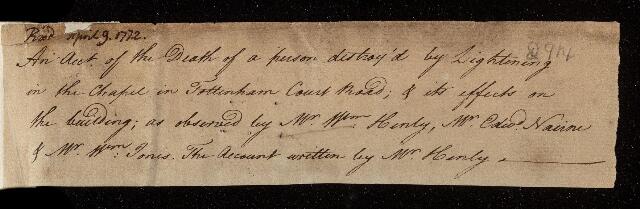 Read April 9. 1772.
An Acct. of the Death of a person distroy'd by Lightning
in the Chapel in Tottenham Court Road; & its effects on
the building; as observed by Mr. Wm. Henly, Mr. Edwd. Nairne
& Mr. Wm. Jones. The Account written by Mr. Henly.